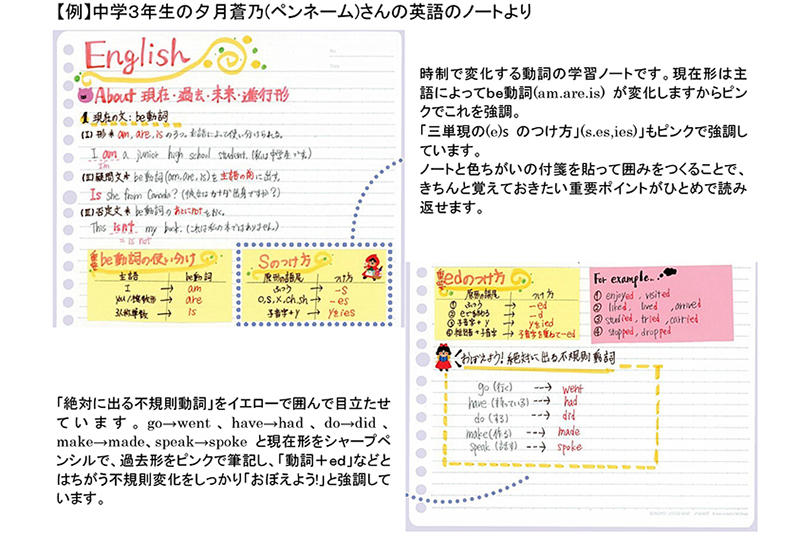 【例】中学3年生の夕月蒼乃(ペンネーム)さんの英語のノートより
English
About 現在・過去・未来・進行形
1 現在の文:be動詞
(I)形* am, are, isの3つ。主語によって使い分けられる。
I am a junior high school student. (私は中学生です)
I'm
(II)疑問文* be動詞(am, are, is)を主語の前に出す。
Is she from Canada? (彼女はカナダ出身ですか?)
(III)否定文* be動詞のあとにnotをおく。
This isn't my book. (これは私の本ではありません。)
= is not
重要 be動詞の使い分け
主語 be動詞
I → am
you/複数形 → are
3人称単数 → is
Sのつけ方
原形の語尾 つけ方
ふつう → -s
o,s,x,ch,sh → -es
子音字+y → y→ies
時制で変化する動詞の学習ノートです。現在形は主
語によってbe動詞(am.are.is) が変化しますからピン
クでこれを強調。
「三単現の(e)s のつけ方」(s.es,ies)」もピンクで強調し
ています。
ノートと色ちがいの付箋を貼って囲みをつくることで、
きちんと覚えておきたい重要ポイントがひとめで読み
返せます。
重要 edのつけ方
原形の語尾 つけ方
① ふつう → -ed
② eで終わる → -d
③ 子音字+y → y→ied
④ 短母音+子音字 → 子音字を重ねて-ed
For example...
① enjoyed, visited
② liked, lived, arrived
③ studied, tried, carried
④ stopped, dropped
おぼえよう!絶対に出る不規則動詞
go (行く) ---→ went
have (持っている) ---→ had
do (する) ---→ did
make (作る) ---→ made
speak (話す) ---→ spoke
「絶対に出る不規則動詞」をイエローで囲んで目立たせ
ています。go→went 、have→had 、do→did 、
make→made、speak→spoke と現在形をシャープペ
ンシルで、過去形をピンクで筆記し、「動詞+ed」などと
はちがう不規則変化をしっかり「おぼえよう!」と強調して
います。